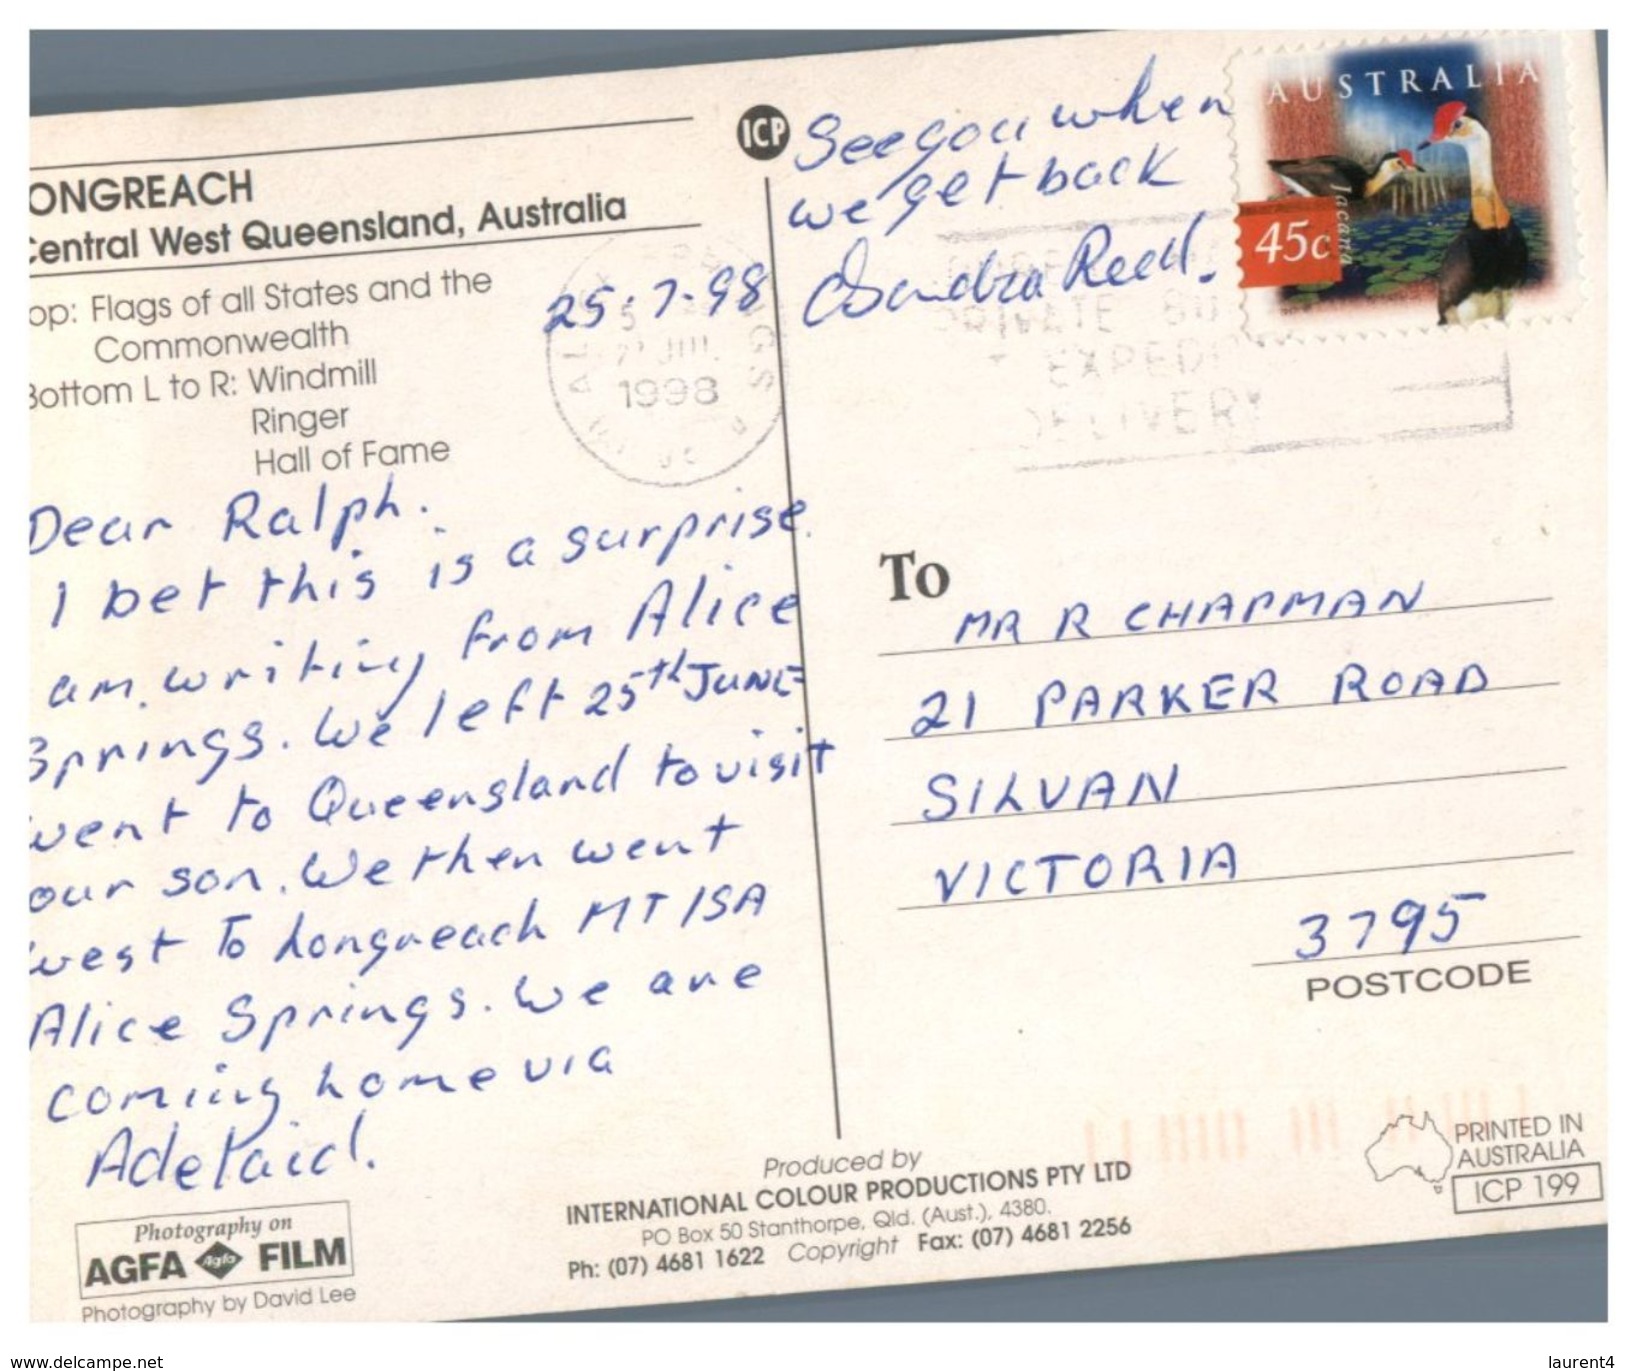 ONGREACH
Central West Queensland, Australia
op: Flags of all States and the
Commonwealth
Bottom L to R: Windmill
Ringer
Hall of Fame
25-7-98
1998
Dear Ralph.
I bet this is a surprise.
am writing from Alice
Springs. We left 25th JUNE
went to Queensland to visit
our son. We then went
west To Longreach MT ISA
Alice Springs. We are
coming home via
Adelaid.
Photography on
AGFA Agfa FILM
Photography by David Lee
ICP
See you when
we get back
Reed.
AUSTRALIA
Jacana
45c
EXPEDI
DELIVERY
To
MR R CHAPMAN
21 PARKER ROAD
SILVAN
VICTORIA
3795
POSTCODE
Produced by
INTERNATIONAL COLOUR PRODUCTIONS PTY LTD
PO Box 50 Stanthorpe, Qld. (Aust.), 4380.
Ph: (07) 4681 1622 Copyright Fax: (07) 4681 2256
PRINTED IN
AUSTRALIA
ICP 199
www.delcampe.net
laurent4